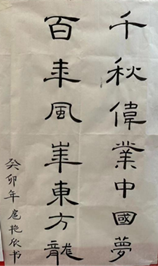 千秋偉業中國夢
百年風華東方龍
癸卯年 书